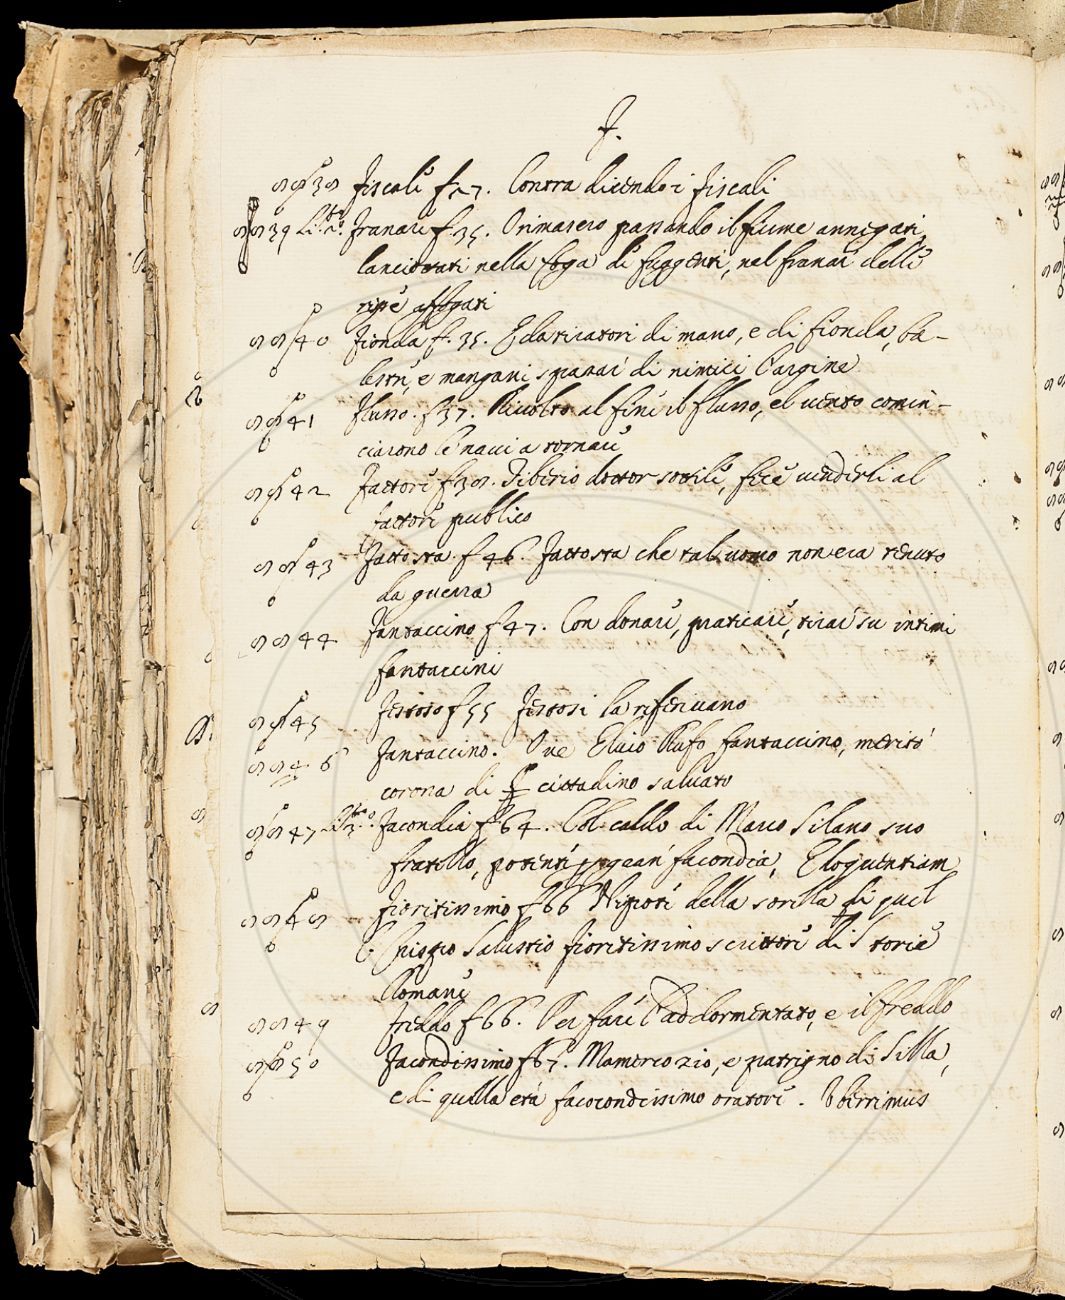 F.
Fiscale f 27. Contra dicendo i fiscali
39 Franare f 35. O rimasero passando il fiume annegati
lanciottati nella foga di fuggenti, nel franar delle
ripe affogati
40 Fionda f. 35. E da ticatori di mano, e di fionda, ba-
lestre, e mangani spianar di nimici l'argine
41 Flusso f 37. Rivolto al fine il flusso, e'l vento comin-
ciarono le navi a tornare
42 Fattore f 38. Tiberio dottor sottile, fece venderli al
fattore publico
43 Fattosta f 46. Fattosta che tal uomo non era tenuto
da guerra
44 Fantaccino f 47. Con donare, praticare, tirar su intimi
fantaccini
45 Festoso f 55 Festosi la riferivano
46 Fantaccino. Ove Elvio Rufo fantaccino, meritò
corona di cittadino salvato
47 Facondia f 64. Col caldo di Marco Silano suo
fratello, potente per gran facondia, Eloquentiam
48 Fioritissimo f 66 Nipote della sorella di quel
C. Crispo Salustio fioritissimo scrittore di Storie
Romane
49 Freddo f 66. Per fare l'addormentato, e il freddo
50 Facondissimo f 67. Mamerco zio, e patrigno di Silla,
e di quella età facocondissimo oratore. Uberrimus